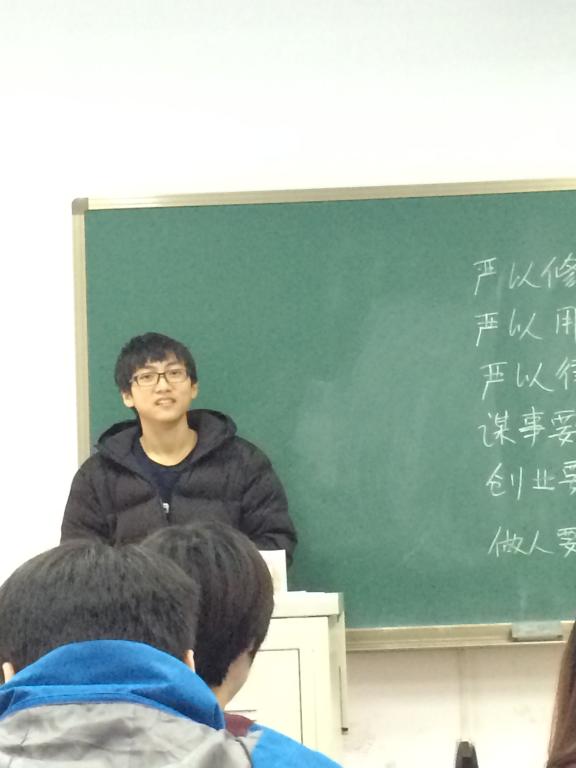 严以修
严以用
严以律
谋事要
创业要
做人要